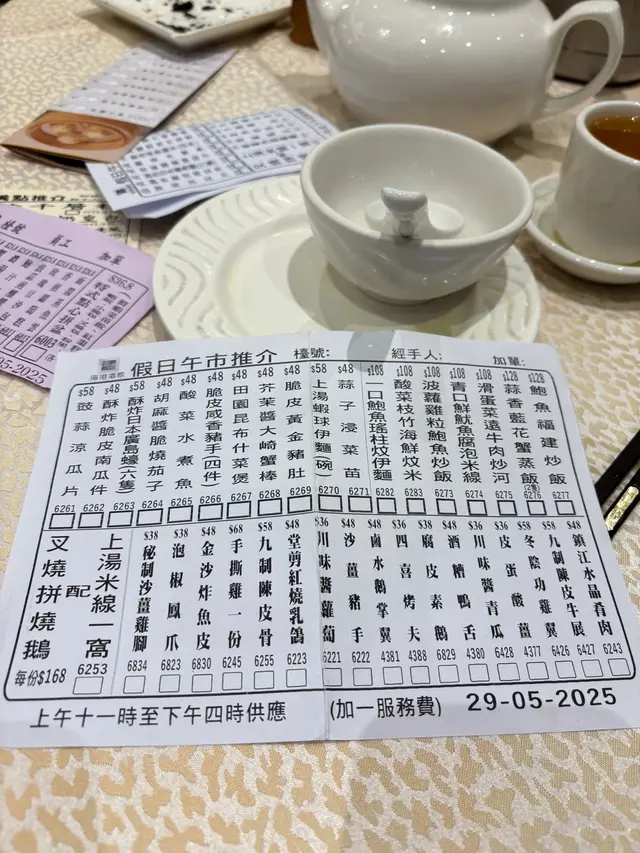 海港酒家
假日午市推介 檯號: 經手人: 加單:
$58 豉蒜涼瓜片 6261
$48 酥炸脆皮南瓜件 6262
$58 酥炸日本廣島蠔(六隻) 6263
$48 胡麻醬脆燒茄子 6264
$48 酸菜水煮魚 6265
$48 脆皮咸香豬手(四件) 6266
$48 田園昆布什菜煲 6267
$48 芥茉醬大崎蟹棒 6268
$48 脆皮黃金豬肚 6269
$58 上湯蝦球伊麵(碗) 6270
$48 蒜子浸菜苗 6271
$108 一口鮑魚瑤柱炆伊麵 6282
$108 酸菜枝竹海鮮炆米 6283
$108 波蘿雞粒鮑魚炒飯 6273
$108 青口鮮魷魚腐泡米線 6274
$108 滑蛋菜遠牛肉炒河 6275
$128 蒜香藍花蟹蒸飯 6276
$128 鮑魚福建炒飯 6277
叉燒拼燒鵝 配 上湯米線一窩
每份$168 6253
$38 秘制沙薑雞腳 6834
$38 泡椒鳳爪 6823
$48 金沙炸魚皮 6830
$68 手撕雞一份 6245
$58 九制陳皮骨 6255
$48 堂剪紅燒乳鴿 6223
$36 川味醬蘿蔔 6221
$48 沙薑豬手 6222
$48 鹵水鵝掌翼 4381
$36 四喜烤夫 4388
$38 腐皮素鵝 6829
$48 酒糟鴨舌 4380
$36 川味醬青瓜 6428
$38 皮蛋酸薑 4377
$58 冬陰功雞翼 6426
$58 九制陳皮牛展 6427
$48 鎮江水晶肴肉 6243
上午十一時至下午四時供應 (加一服務費) 29-05-2025
加單
$368
6803
05-2025